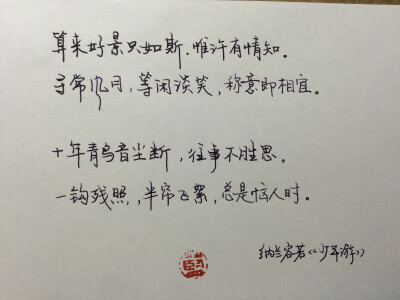 算来好景只如斯，惟许有情知。
寻常风月，等闲谈笑，称意即相宜。
十年青鸟音尘断，往事不胜思。
一钩残照，半帘飞絮，总是恼人时。
纳兰容若《少年游》